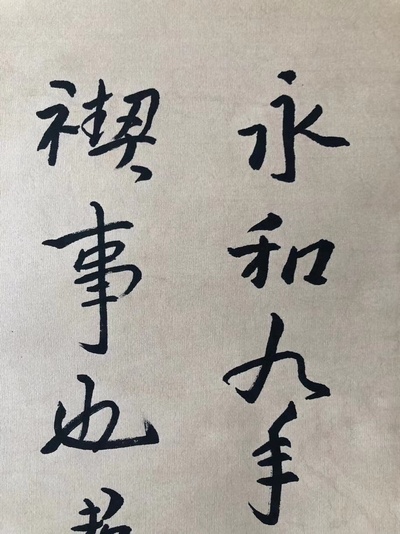 永和九年
禊事也